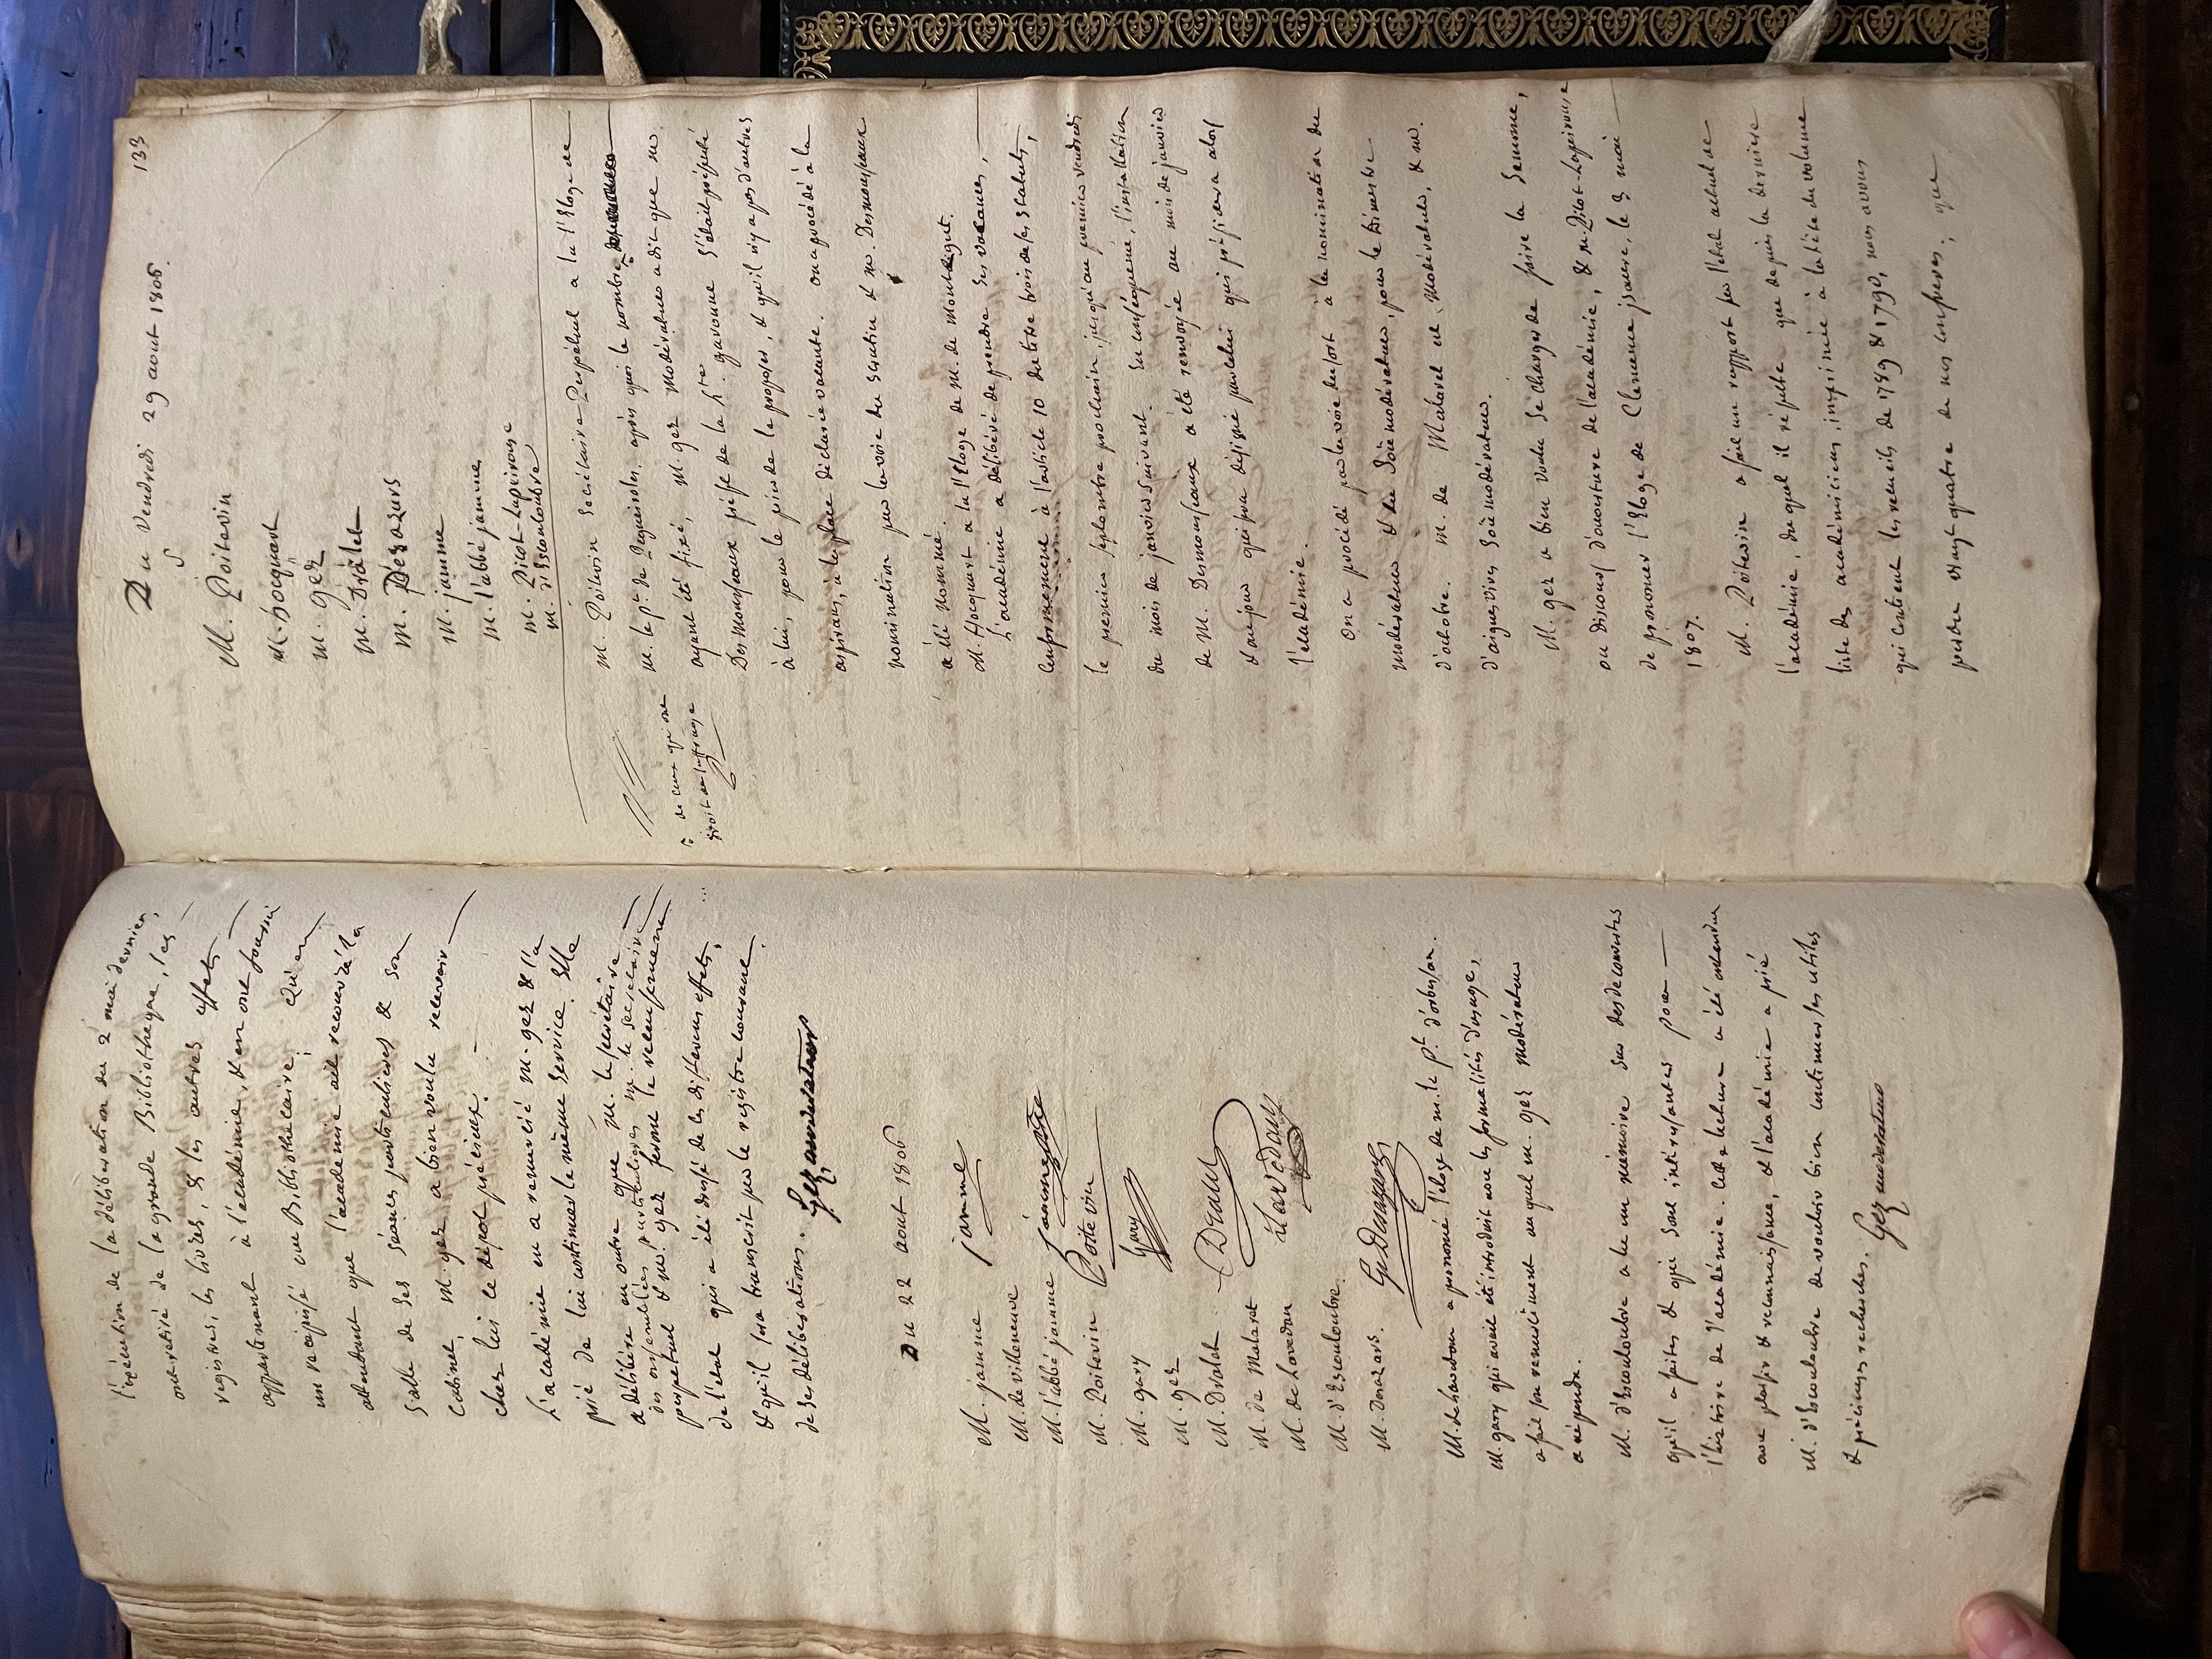 l'exécution de la deliberation du 2 mai dernier,
ont retiré de la grande Bibliotheque, les
registres, les livres, & les autres effets
appartenant à l'académie, & en ont fourni
un recepissé au Bibliothecaire; qu'en
attendant que l'academie ait recouvré la
salle de ses séances particulieres & son
cabinet, M. gez a bien voulu recevoir
chez lui ce dépot précieux.
L'académie en a remercié M. gez & l'a
prié de lui continuer le même service. Elle
a délibéré en outre que M. le secrétaire
des assemblées particulieres M. le secretaire
perpetuel & M. gez ferme le recensement
de l'etat qui a été dressé de les differens effets,
& qu'il sera transcrit sur le registre courant
de ses délibérations. Gez moderateur
Du 22 aout 1806
M. jamme jamme
M. de villeneuve
M. l'abbé jamme
M. Poitevin Poitevin
M. gary Gary
M. gez
M. Dralet Dralet
M. de Malaret
M. de Lavedan Lavedan
M. d'Escouloubre.
M. Desazars. G. Desazars
M. de Lavedan a prononcé l'éloge de M. le Pt. d'orbessan.
M. gary qui avait été introduit avec les formalités d'usage,
a fait son remerciment auquel M. gez Modérateur
a répondu.
M. d'Escouloubre a lu un mémoire sur des decouvertes
qu'il a faites & qui sont intéressantes pour
l'histoire de l'académie. Cette lecture a été entendue
avec plaisir & reconnaissance, & l'académie a prié
M. d'Escouloubre de vouloir bien continuer ses utiles
& précieuses recherches. Gez moderateur
133
Du Vendredi 29 aout 1806.
M. Poitevin
M. hocquart
M. gez
M. Dralet
M. Désazars
M. jamme
M. l'abbé jamme
M. Picot-Lapeirouse
M. d'Escouloubre
M. Poitevin Secrétaire Perpétuel a lu l'Eloge de
M. le pt. de Reguisoles. après quoi le nombre
de ceux qui ont
droit au suffrage
ayant été fixé, M. gez Modérateur a dit que M.
Desmousseaux préfet de la hte. garonne s'était présenté
à lui, pour le prier de le proposer, & qu'il n'y a pas d'autres
aspirans, à la place déclarée vacante. on a procédé à la
nomination par la voie du scrutin & M. Desmousseaux
a été nommé.
M. hocquart a lu l'Eloge de M. de Montégut.
L'académie a délibéré de prendre ses vacances,
conformement à l'article 10 du titre trois de ses statuts,
le premier septembre prochain jusqu'au premier vendredi
du mois de janvier suivant. En conséquence, l'installation
de M. Desmousseaux a été renvoyée au mois de janvier
& au jour qui sera désigné par celui qui présidera alors
l'académie.
On a procédé par la voie du sort à la nomination du
modérateur & du soûs modérateur, pour le trimestre
d'octobre. M. de Malaret est Modérateur, & M.
d'aiguesvives Soûs modérateur.
M. gez a bien voulu se charger de faire la Semonce,
ou Discours d'ouverture de l'académie, & M. Picot-Lapeirouse
de prononcer l'Eloge de Clemence jsaure, le 3 mai
1807.
M. Poitevin a fait un rapport sur l'etat actuel de
l'académie, duquel il résulte que depuis la derniere
liste des académiciens, imprimée à la tête du volume
qui contient les recueils de 1789 & 1790, nous avons
perdu vingt quatre de nos confreres; que